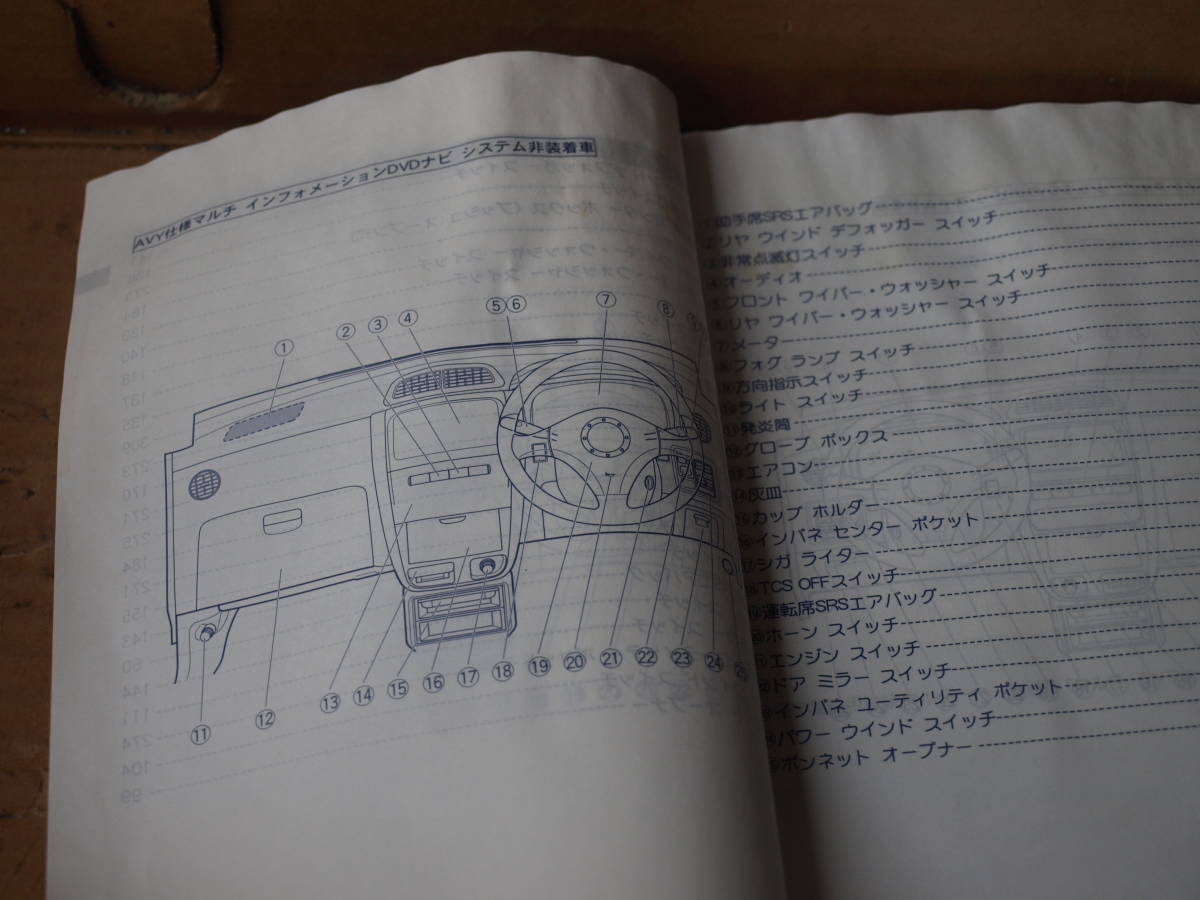 AVY仕様マルチ インフォメーションDVDナビ システム非装着車
①
②
③
④
⑤⑥
⑦
⑧
⑪
⑫
⑬
⑭
⑮
⑯
⑰
⑱
⑲
⑳
㉑
㉒
㉓
㉔
㉕
助手席SRSエアバッグ
②リヤ ウインド デフォッガー スイッチ
③非常点滅灯スイッチ
④オーディオ
⑤フロント ワイパー・ウォッシャー スイッチ
⑥リヤ ワイパー・ウォッシャー スイッチ
⑦メーター
⑧フォグ ランプ スイッチ
⑨方向指示スイッチ
⑩ライト スイッチ
⑪発炎筒
⑫グローブ ボックス
⑬エアコン
⑭灰皿
⑮カップ ホルダー
⑯インパネ センター ポケット
⑰シガ ライター
⑱TCS OFFスイッチ
⑲運転席SRSエアバッグ
⑳ホーン スイッチ
エンジン スイッチ
ドア ミラー スイッチ
インパネ ユーティリティ ポケット
パワー ウインド スイッチ
ボンネット オープナー